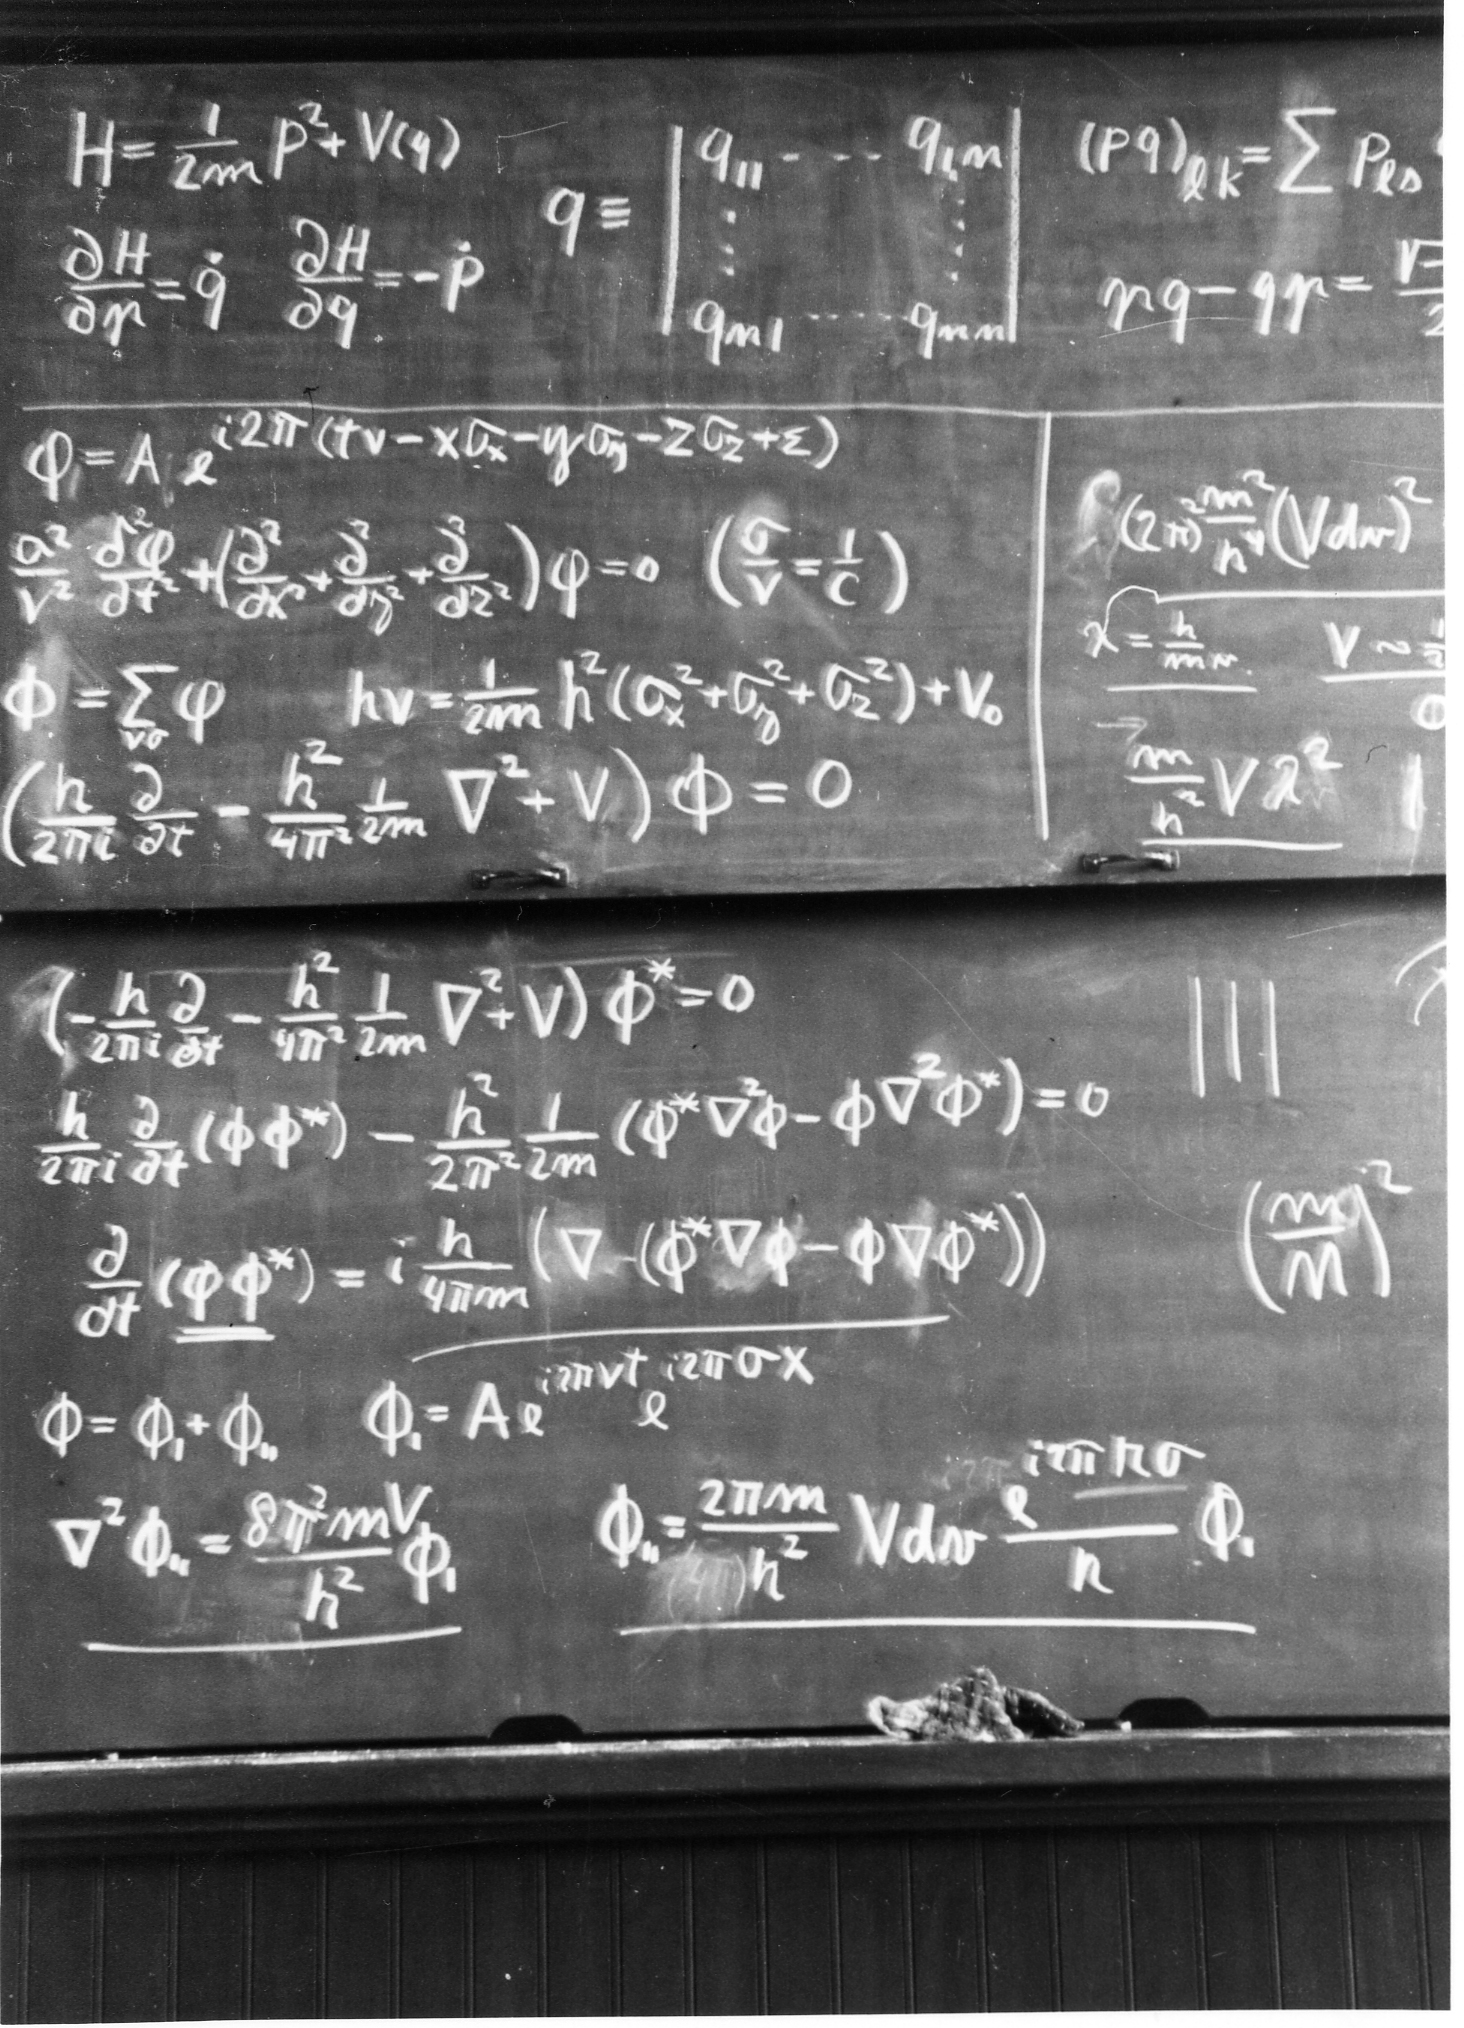 H = 1/2m p² + V(q)
∂H/∂p = q̇  ∂H/∂q = -ṗ
q ≡ | q₁₁ - - - - q₁,n |
| q_n1 ..... q_nn |
(pq)_lk = Σ P_ls
pq - qp =
φ = A e^{i2π(tν - xσ_x - yσ_y - zσ_z + ε)}
σ²/ν² ∂²φ/∂t² + (∂²/∂x² + ∂²/∂y² + ∂²/∂z²) φ = 0  (σ/ν = 1/c)
Φ = Σ_νσ φ  hν = 1/2m h²(σ_x² + σ_y² + σ_z²) + V₀
(h/2πi ∂/∂t - h²/4π² 1/2m ∇² + V) Φ = 0
(2π)² m²/h⁴ (Vdv)²
λ = h/mv  V ~
m/h² V λ²
(-h/2πi ∂/∂t - h²/4π² 1/2m ∇² + V) Φ* = 0
h/2πi ∂/∂t (ΦΦ*) - h²/2π² 1/2m (Φ*∇²Φ - Φ∇²Φ*) = 0
∂/∂t (ΦΦ*) = i h/4πm (∇·(Φ*∇Φ - Φ∇Φ*))
(m/M)²
Φ = Φ₁ + Φ₁₁  Φ₁ = A e^{i2πνt} e^{i2πσx}
∇²Φ₁₁ = 8π²mV/h² Φ₁  Φ₁₁ = 2πm/h² Vdv e^{i2πrσ}/r Φ₁